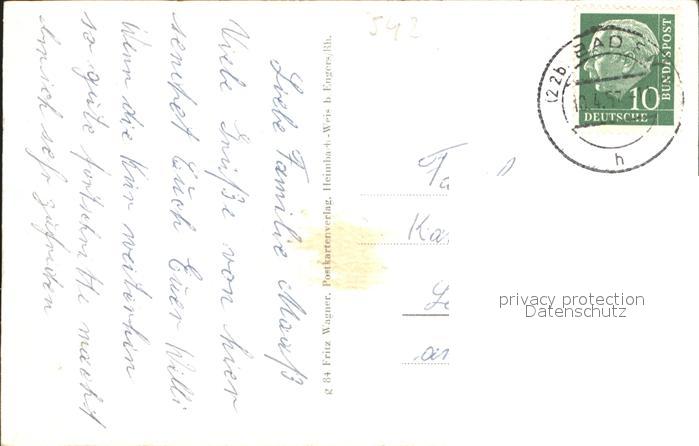 Liebe Familie Maaß
Viele Grüße von hier
sendet Euch Euer Willi
Wenn die Kur weiterhin
so gute fortschritte macht
bin ich sehr zufrieden
g 84 Fritz Wagner, Postkartenverlag, Heimbach-Weis b. Engers/Rh.
542
Fa
Ka
an
(22b) BAD
10.4.5
h
10
DEUTSCHE
BUNDESPOST
privacy protection
Datenschutz